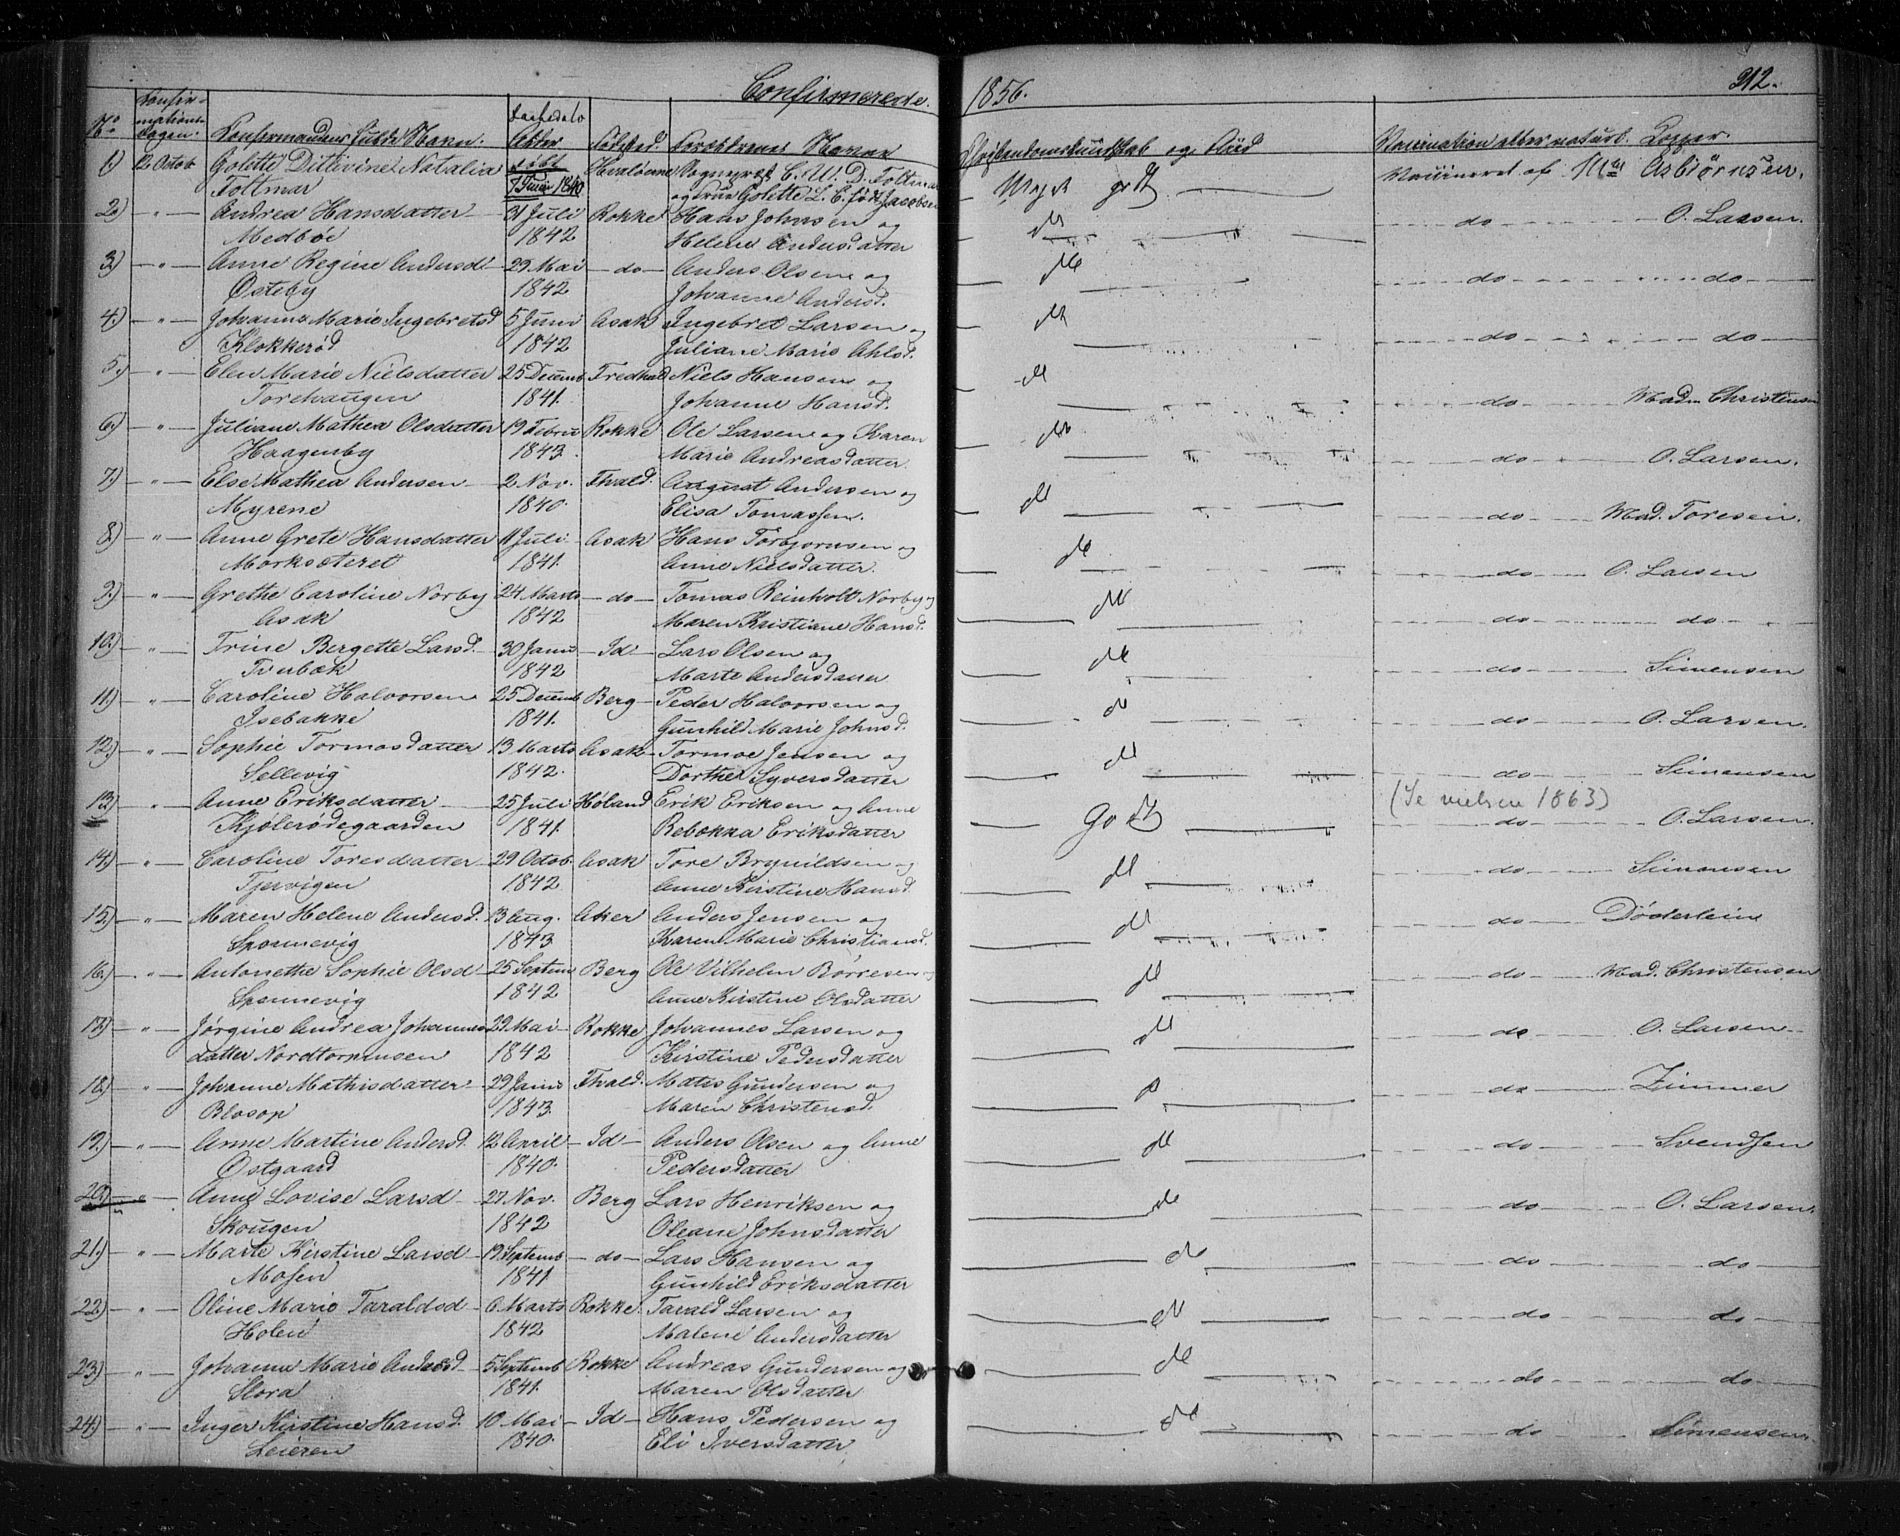 Confirmerede. 1856. 312.
No Confirmations-Dagen. Konfirmandens fulde Navn. Alder Fødested. Forældrenes Navne Christendomskundskab og Flid Vaccination eller naturl. Kopper.
1) 12 Octob Golette Ditlevine Natalia døbt Hvaløerne Sogneprest C. W. D. Foltmar Meget godt Vaccineret af Asbiørnsen.
Foltmar 7 Juni 1840 og Frue Golette L. C. født Jacobsen
2) " Andrea Hansdatter 31 Juli Rokke Hans Johnsen og do do O. Larsen.
Medbøe 1842 Helene Andersdatter
3) " Anne Regine Andersd 29 Mai do Anders Olsen og do do do
Østeby 1842 Johanne Andersd.
4) " Johanne Marie Ingebretsd 5 Juni Asak Ingebret Larsen og do do do
Klokkerød 1842 Juliane Marie Ahlsd.
5.) " Elen Marie Nielsdatter 25 Decemb Fredhald Niels Hansen og do do Mad. Christensen
Torehaugen 1841. Johanne Hansd.
6.) " Juliane Mathea Olsdatter 19 Febru Rokke Ole Larsen og Karen do do O. Larsen.
Haagenby 1843. Marie Andreasdatter
7.) " Else Mathea Andersen 2 Nov. Fhald. August Andersen og do do Mad. Toresen.
Myrene 1840. Elisa Tomassen.
8.) " Anne Grete Hansdatter 11 Juli Asak Hans Torgersen og do do O. Larsen
Morksæteret 1841. Anne Nielsdatter.
9.) " Grethe Caroline Norby 24 Marts do Tomas Reinholt Norby og do do do
Asak 1842 Maren Kristiane Hansd.
10.) " Trine Bergette Larsd. 30 Janu Id Lars Olsen og do do Simensen
1842 Marte Andersdatter
11.) " Caroline Halvorsen 25 Decemb Berg Peder Halvorsen og do do O. Larsen.
Isebakke 1841. Gunhild Marie Johnsd.
12.) " Sophie Tormosdatter 13 Marts Asak Tormoe Jensen og do do Simensen
Sellevig 1842. Dorthea Syversdatter
13.) " Anne Eriksdatter 25 Juli Høland Erik Eriksen og Anne Godt (Se vielsen 1863) do O. Larsen.
Kjølerødegaarden 1841. Rebekka Eriksdatter
14.) " Caroline Toresdatter 29 Octob Asak Tore Brynildsen og do do Simensen
Tjervigen 1842. Anne Kirstine Hansd
15.) " Maren Helene Andersd. 13 Aug. Aker Anders Jensen og do do Døderlein
Sponnevig 1843 Karen Marie Christiansd.
16.) " Antonette Sophie Olsd 25 Septem Berg Ole Vilhelm Børresen og do do Mad. Christensen
Sponnevig 1842 Anne Kirstine Olsdatter
17.) " Jørgine Andrea Johannes 29 Mai Rokke Johannes Larsen og do do O. Larsen
datter Nordtorpmosen 1842 Kirstine Pedersdatter
18.) " Johanne Mathisdatter 29 Janu Fhald. Mates Gundersen og do do Zimmer
Blosop 1843. Maren Christensd.
19.) " Anne Martine Andersd. 12 April Id Anders Olsen og Anne do do Svendsen
Østgaard 1840. Pedersdatter
20.) " Anne Lovise Larsd 27 Nov. Berg Lars Henriksen og do do O. Larsen.
Skougen 1842 Oleane Johnsdatter
21.) " Marte Kirstine Larsd 19 Septemb do Lars Hansen og do do do
Mosen 1841. Gunhild Eriksdatter
22.) " Oline Marie Taraldsd 6 Marts Rokke Tarald Larsen og do do do
Holen 1842 Malene Andersdatter
23.) " Johanne Marie Andersd 5 Septemb Rokke Andreas Gundersen og do do do
Slora 1841. Maren Olsdatter
24.) " Inger Kirstine Hansd. 10 Mai Id Hans Pedersen og do do Simensen
Leieren 1840. Eli Iversdatter